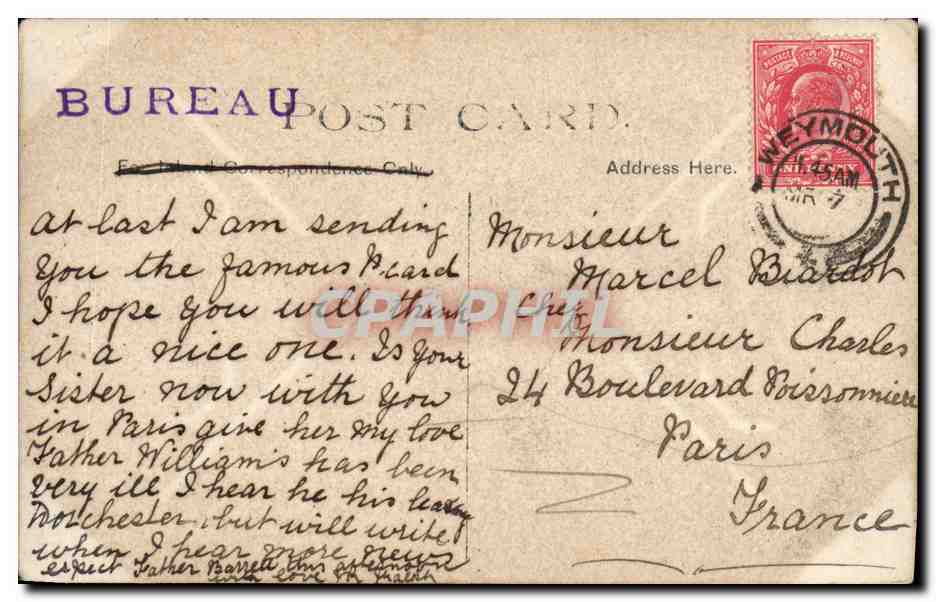 BUREAU
POST CARD.
For Inland Correspondence Only.
Address Here.
POSTAGE REVENUE
ONE PENNY
WEYMOUTH
1.45AM
MR 7
At last I am sending
you the famous P.card
I hope you will think
it a nice one. Is your
Sister now with you
in Paris give her my love
Father Williams has been
very ill I hear he his leaving
Dorchester, but will write
when I hear more news
expect Father Barrett this afternoon
with love
Monsieur
Marcel Biardot
Chez
Monsieur Charles
24 Boulevard Poissonniere
Paris
France
CPAPHIL